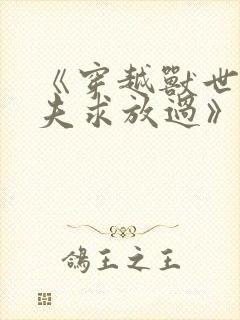 《穿越獸世
夫求放過》
鴿王之王